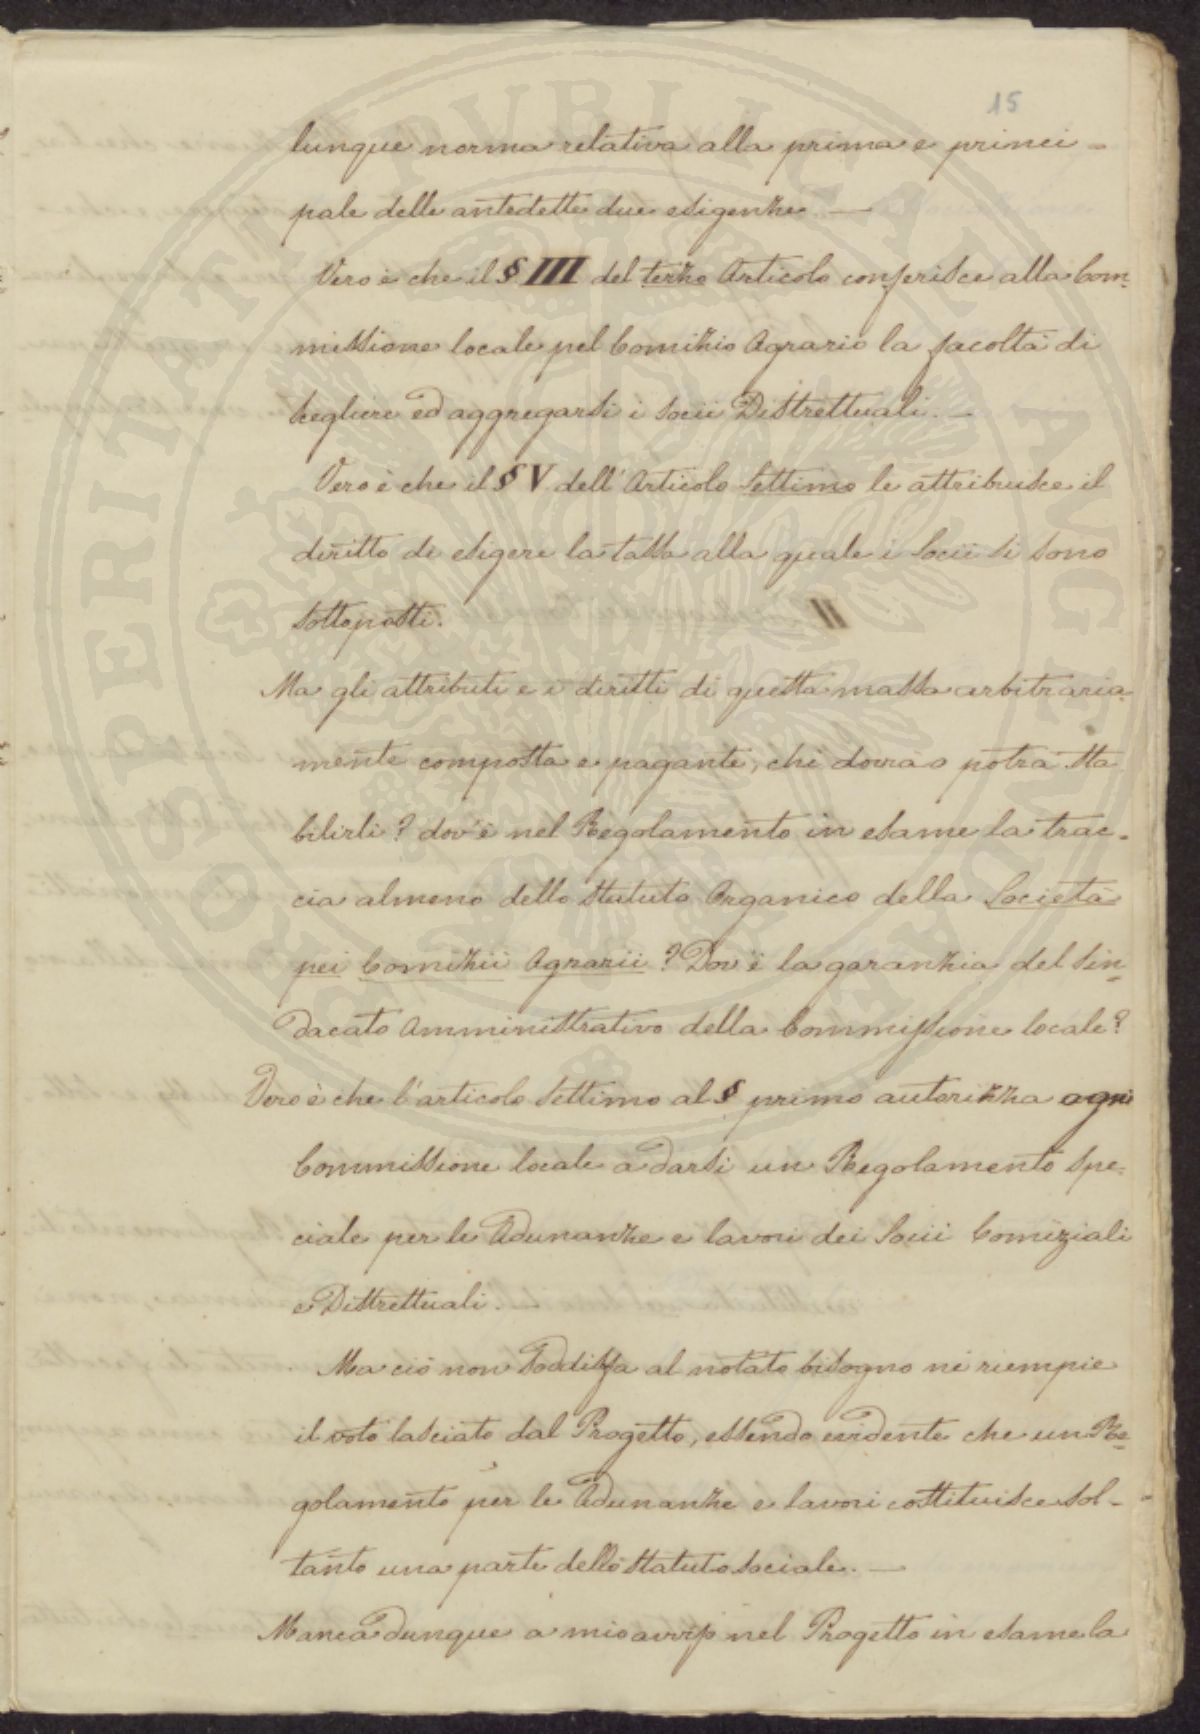 15
lunque norma relativa alla prima e princi-
pale delle antedette due esigenze. —
Vero è che il § III del terzo Articolo conferisce alla Com-
missione locale pel Comizio Agrario la facoltà di
scegliere ed aggregarsi i Socii Distrettuali. —
Vero è che il § V. dell' Articolo Settimo le attribuisce il
diritto di esigere la tassa alla quale i Socii si sono
sottoposti.
Ma gli attributi e i diritti di questa massa arbitraria-
mente composta e pagante, chi dovrà o potrà sta
bilirli? dov'è nel Regolamento in esame la trac-
cia almeno dello Statuto Organico della Società
pei Comizii Agrarii? Dov'è la garanzia del Sin-
dacato Amministrativo della Commissione locale?
Vero è che l'articolo Settimo al § primo autorizza ogni
Commissione locale a darsi un Regolamento spe-
ciale per le Adunanze e lavori dei Socii Comiziali
e Distrettuali. —
Ma ciò non soddisfa al notato bisogno nè riempie
il voto lasciato dal Progetto, essendo evidente che un Re-
golamento per le Adunanze e lavori costituisce sol-
tanto una parte dello Statuto Sociale. —
Manca dunque a mio avviso nel Progetto in esame la
PROSPERITATI PVBLICAE AVGENDAE